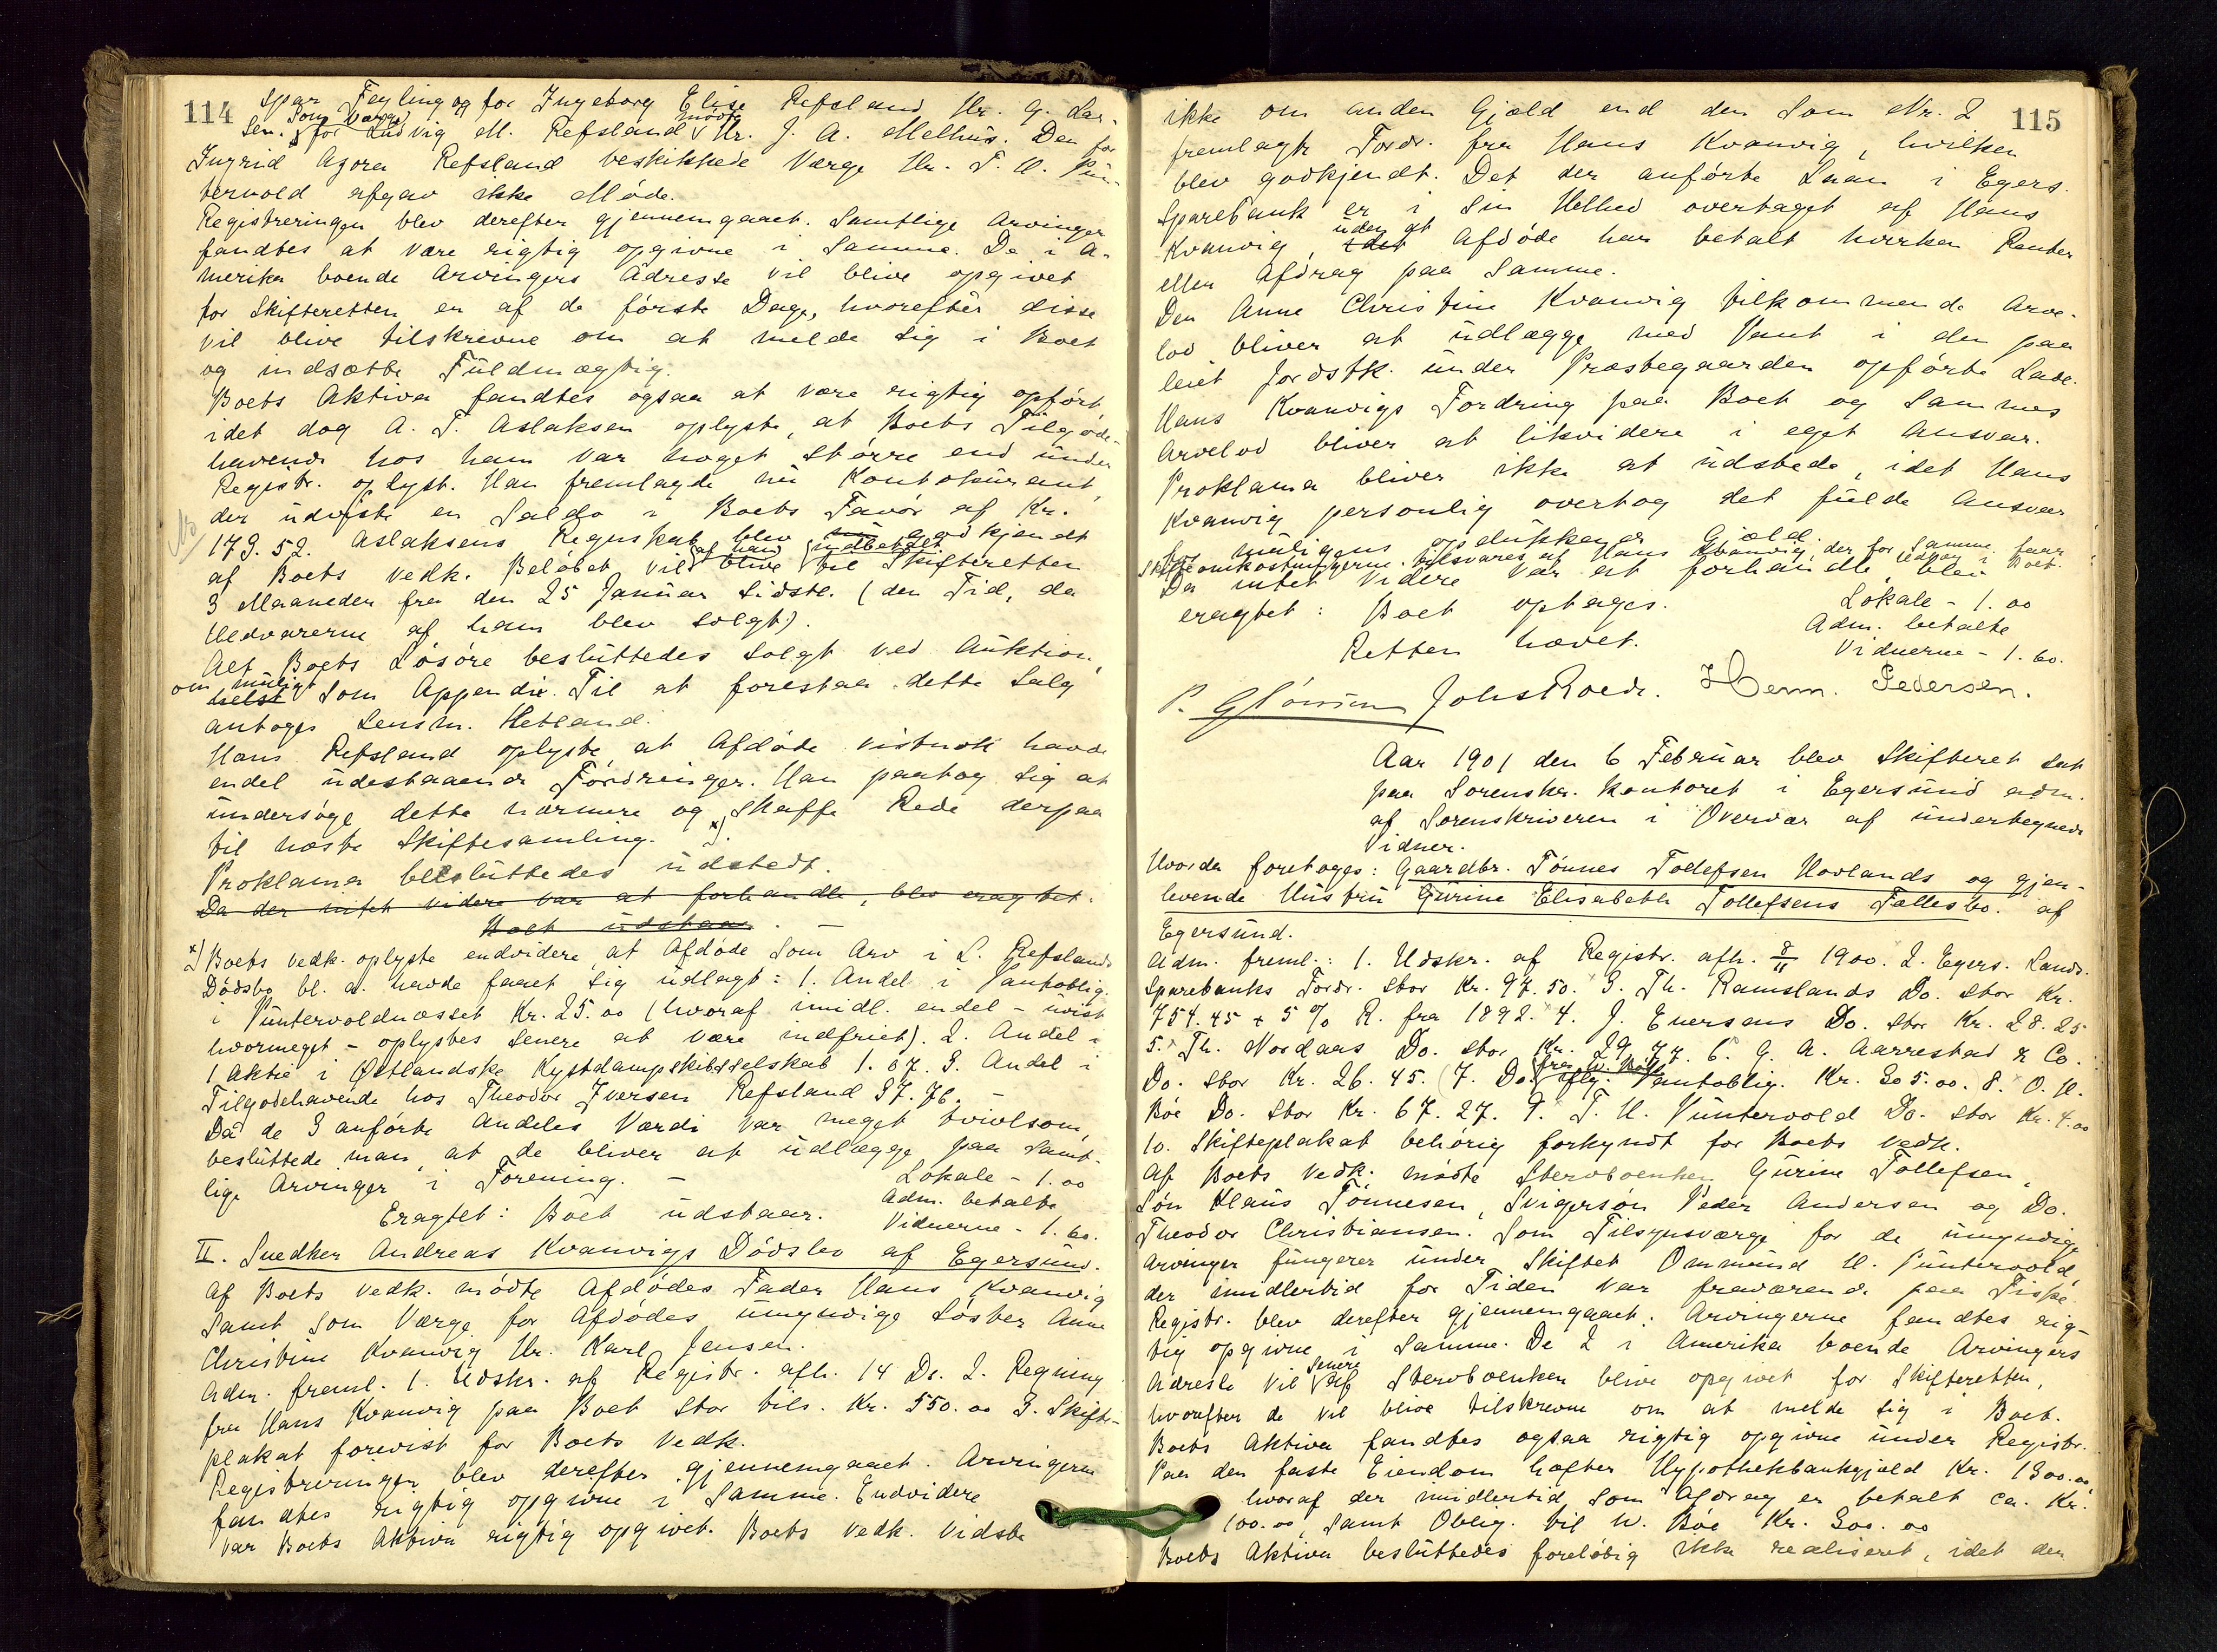 114
Feyling og for Ingeborg Elise Refsland Hr. G. Lar-
sen. som Værge for Ludvig M. Refsland mødte Hr. J. A. Melhus. Den for
Ingrid Agora Refsland beskikkede Værge Hr. T. U. Pun-
tervold afgav ikke Møde.
Registreringen blev derefter gjennemgaaet. Samtlige Arvinger
fandtes at være rigtig opgivne i Samme. De i A-
merika boende Arvingers Adresse vil blive opgivet
for Skifteretten en af de første Dage, hvorefter disse
vil blive tilskrevne om at melde sig i Boet
og indsætte Fuldmægtig.
Boets Aktiva fandtes ogsaa at være rigtig opført,
idet dog A. T. Aslaksen oplyste, at Boets Tilgode-
havende hos ham var noget større end under
Registr. oplyst. Han fremlagde nu Kontokurant,
der udviste en Saldo i Boets Favør af Kr.
179.52. Aslaksens Regnskab blev nu godkjendt
af Boets Vedk. Beløbet vil af ham blive indbetalt til Skifteretten
3 Maaneder fra den 25 Januar sidstl. (den Tid, da
Uldvarerne af ham blev solgt).
Alt Boets Løsøre besluttedes solgt ved Auktion,
om muligt helst som Appendix. Til at forestaa dette Salg
antoges Lensm. Hetland.
Hans Refsland oplyste, at Afdøde vistnok havde
endel udestaaende Fordringer. Han paatog sig at
undersøge dette nærmere og skaffe Rede derpaa
til næste Skiftesamling. x)
Proklama besluttedes udstedt.
Da der intet videre var at forhandle, blev eragtet:
Boet udstaar.
x) Boets Vedk. oplyste endvidere, at Afdøde som Arv i S. Refslands
Dødsbo bl. a. havde faaet sig udlagt: 1. Andel i Pantoblig.
i Puntervoldnæsset Kr. 25.00 (hvoraf imidl. endel - uvist
hvormeget - oplystes senere at være indfriet). 2. Andel i
1 Aktie i Østlandske Kystdampskibsselskab 1.07. 3. Andel i
Tilgodehavende hos Theodor Iversen Refsland 37.76. -
Da de 3 anførte Andeles Værdi var meget tvivlsom,
besluttede man, at de bliver at udlægge paa samt-
lige Arvinger i Forening. -
Lokale - 1.00
Eragtet: Boet udstaar.
Adm. betalte
Vidnerne - 1.60.
II. Snedker Andreas Kvanvigs Dødsbo af Egersund.
Af Boets Vedk. mødte Afdødes Fader Hans Kvanvig
samt som Værge for Afdødes umyndige Søster Anne
Christine Kvanvig Hr. Karl Jensen.
Adm. freml. 1. Udskr. af Registr. afh. 14 Ds. 2. Regning
fra Hans Kvanvig paa Boet stor tils. Kr. 550.00 3. Skifte-
plakat forevist for Boets Vedk.
Registreringen blev derefter gjennemgaaet. Arvingerne
fandtes rigtig opgivne i Samme. Endvidere
var Boets Aktiva rigtig opgivet. Boets Vedk. vidste
115
ikke om anden Gjæld end den som Nr. 2
fremlagte Fordr. fra Hans Kvanvig, hvilken
blev godkjendt. Det der anførte Laan i Egers.
Sparebank er i sin Helhed overtaget af Hans
Kvanvig, uden at idet Afdøde har betalt hverken Renter
eller Afdrag paa Samme.
Den Anne Christine Kvanvig tilkommende Arve-
lod bliver at udlægge med Pant i den paa
leiet Jordstk. under Præstegaarden opførte Lade.
Hans Kvanvigs Fordring paa Boet og Sammes
Arvelod bliver at likvidere i eget Ansvar.
Proklama bliver ikke at udstede, idet Hans
Kvanvig personlig overtog det fulde Ansvar
for muligens opdukkende Gjæld.
Skifteomkostningerne tilsvares af Hans Kvanvig, der for Samme faar Udlæg i Boet.
Da intet videre var at forhandle, blev
eragtet: Boet optages.
Lokale - 1.00
Adm. betalte
Retten hævet.
Vidnerne - 1.60.
Johs Roed. Herm. Pedersen.
Aar 1901 den 6 Februar blev Skifteret sat
paa Sorenskr. kontoret i Egersund adm.
af Sorenskriveren i Overvær af undertegnede
Vidner.
Hvorda foretoges: Gaardbr. Tønnes Tollefsen Hovlands og gjen-
levende Hustru Gurine Elisabeth Tollefsens Fællesbo. af
Egersund.
Adm. freml.: 1. Udskr. af Registr. afh. 8/11 1900. 2. Egers. Lands.
Sparebanks Fordr. stor Kr. 97.50. 3. Th. Ramslands Do. stor Kr.
754.45 + 5% R. fra 1892. 4. J. Eversens Do. stor Kr. 28.25
5. Th. Nordaas Do. stor Kr. 29.77. 6. G. A. Aarrestad & Co.
Do. stor Kr. 26.45. 7. Do. fra W. Bøe iflg. Pantoblig. Kr. 305.00. 8. O. H.
Bøe Do. stor Kr. 67.27. 9. T. U. Puntervold Do. stor Kr. 4.00
10. Skifteplakat behørig forkyndt for Boets Vedk.
Af Boets Vedk. mødte Stervboenken Gurine Tollefsen,
Søn Klaus Tønnesen, Svigersøn Peder Andersen og Do.
Theodor Christiansen. Som Tilsynsværge for de umyndige
Arvinger fungerer under Skiftet Ommund U. Puntervold,
der imidlertid for Tiden var fraværende paa Fiske.
Registr. blev derefter gjennemgaaet. Arvingerne fandtes rig-
tig opgivne i Samme. De 2 i Amerika boende Arvingers
Adresse vil senere af Stervboenken blive opgivet for Skifteretten,
hvorefter de vil blive tilskrevne om at melde sig i Boet.
Boets Aktiva fandtes ogsaa rigtig opgivne under Registr.
Paa den faste Eiendom hæfter Hypothekbankgjæld Kr. 1300.00,
hvoraf der imidlertid som Afdrag er betalt ca. Kr.
100.00, samt Oblig. til W. Bøe Kr. 300.00
Boets Aktiva besluttedes foreløbig ikke realiseret, idet den